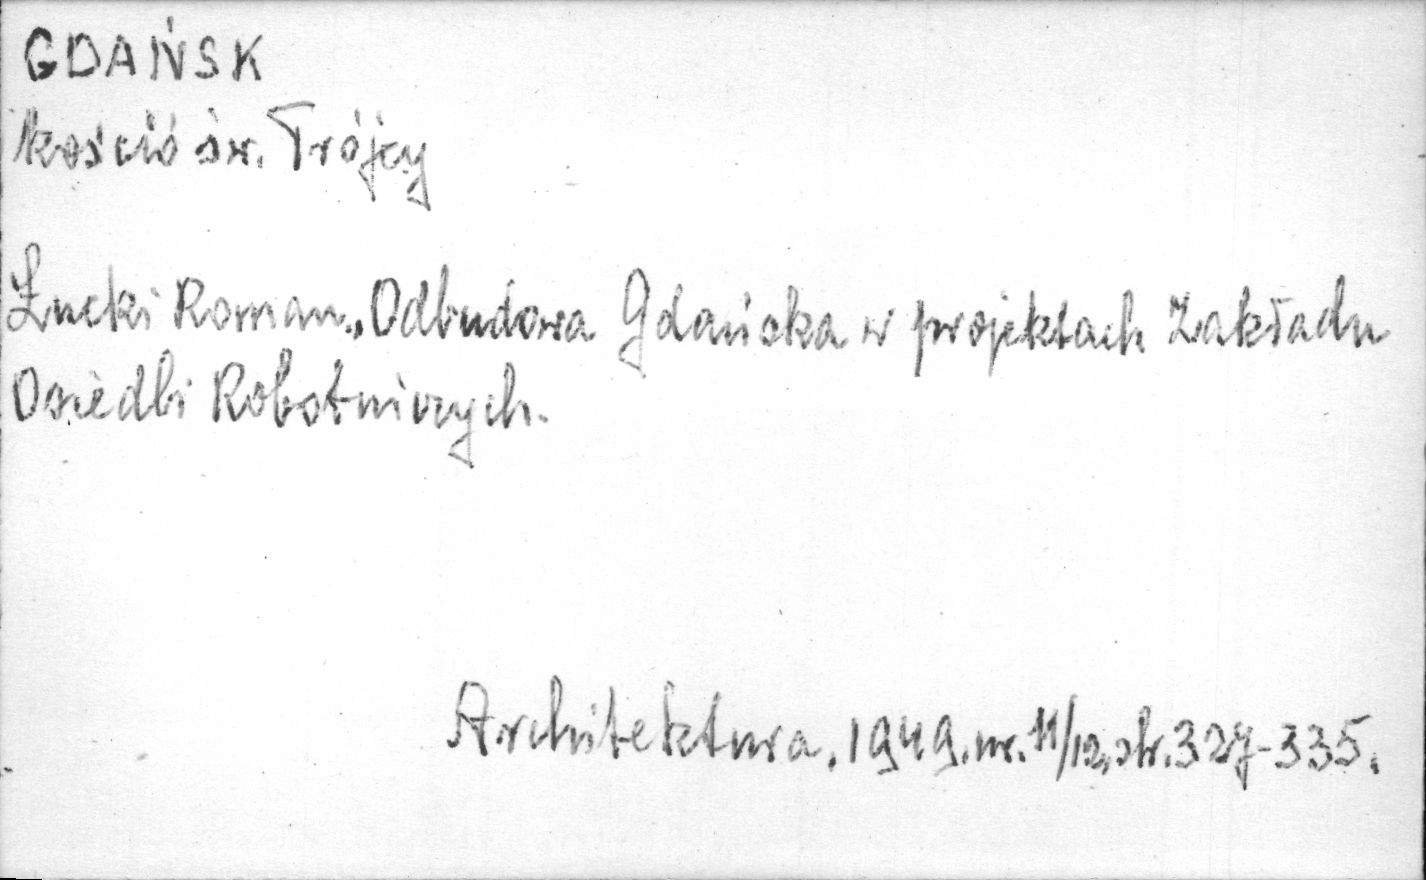 GDAŃSK
kośció św. Trójcy
Łucki Roman „Odbudowa Gdańska w projektach Zakładu
Osiedli Robotniczych.
Architektura, 1949, nr. 11/12, str. 327-335.